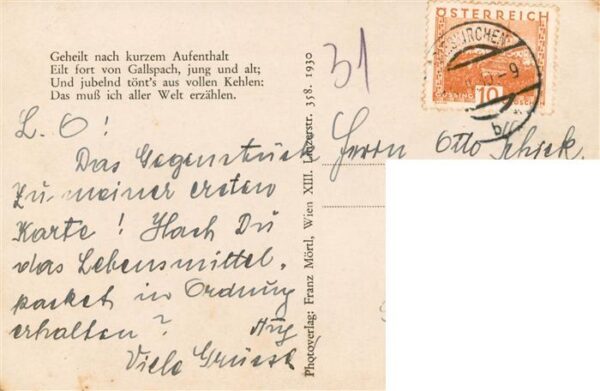 Geheilt nach kurzem Aufenthalt
Eilt fort von Gallspach, jung und alt;
Und jubelnd tönt's aus vollen Kehlen:
Das muß ich aller Welt erzählen.
L. O!
Das Gegenstück
zu meiner ersten
Karte! Hast Du
das Lebensmittel-
packet in Ordnung
erhalten?
Viele Grüsse
Photoverlag: Franz Mörtl, Wien XIII. Linzerstr. 358. 1930
31
ÖSTERREICH
10
Herrn Otto Schick.